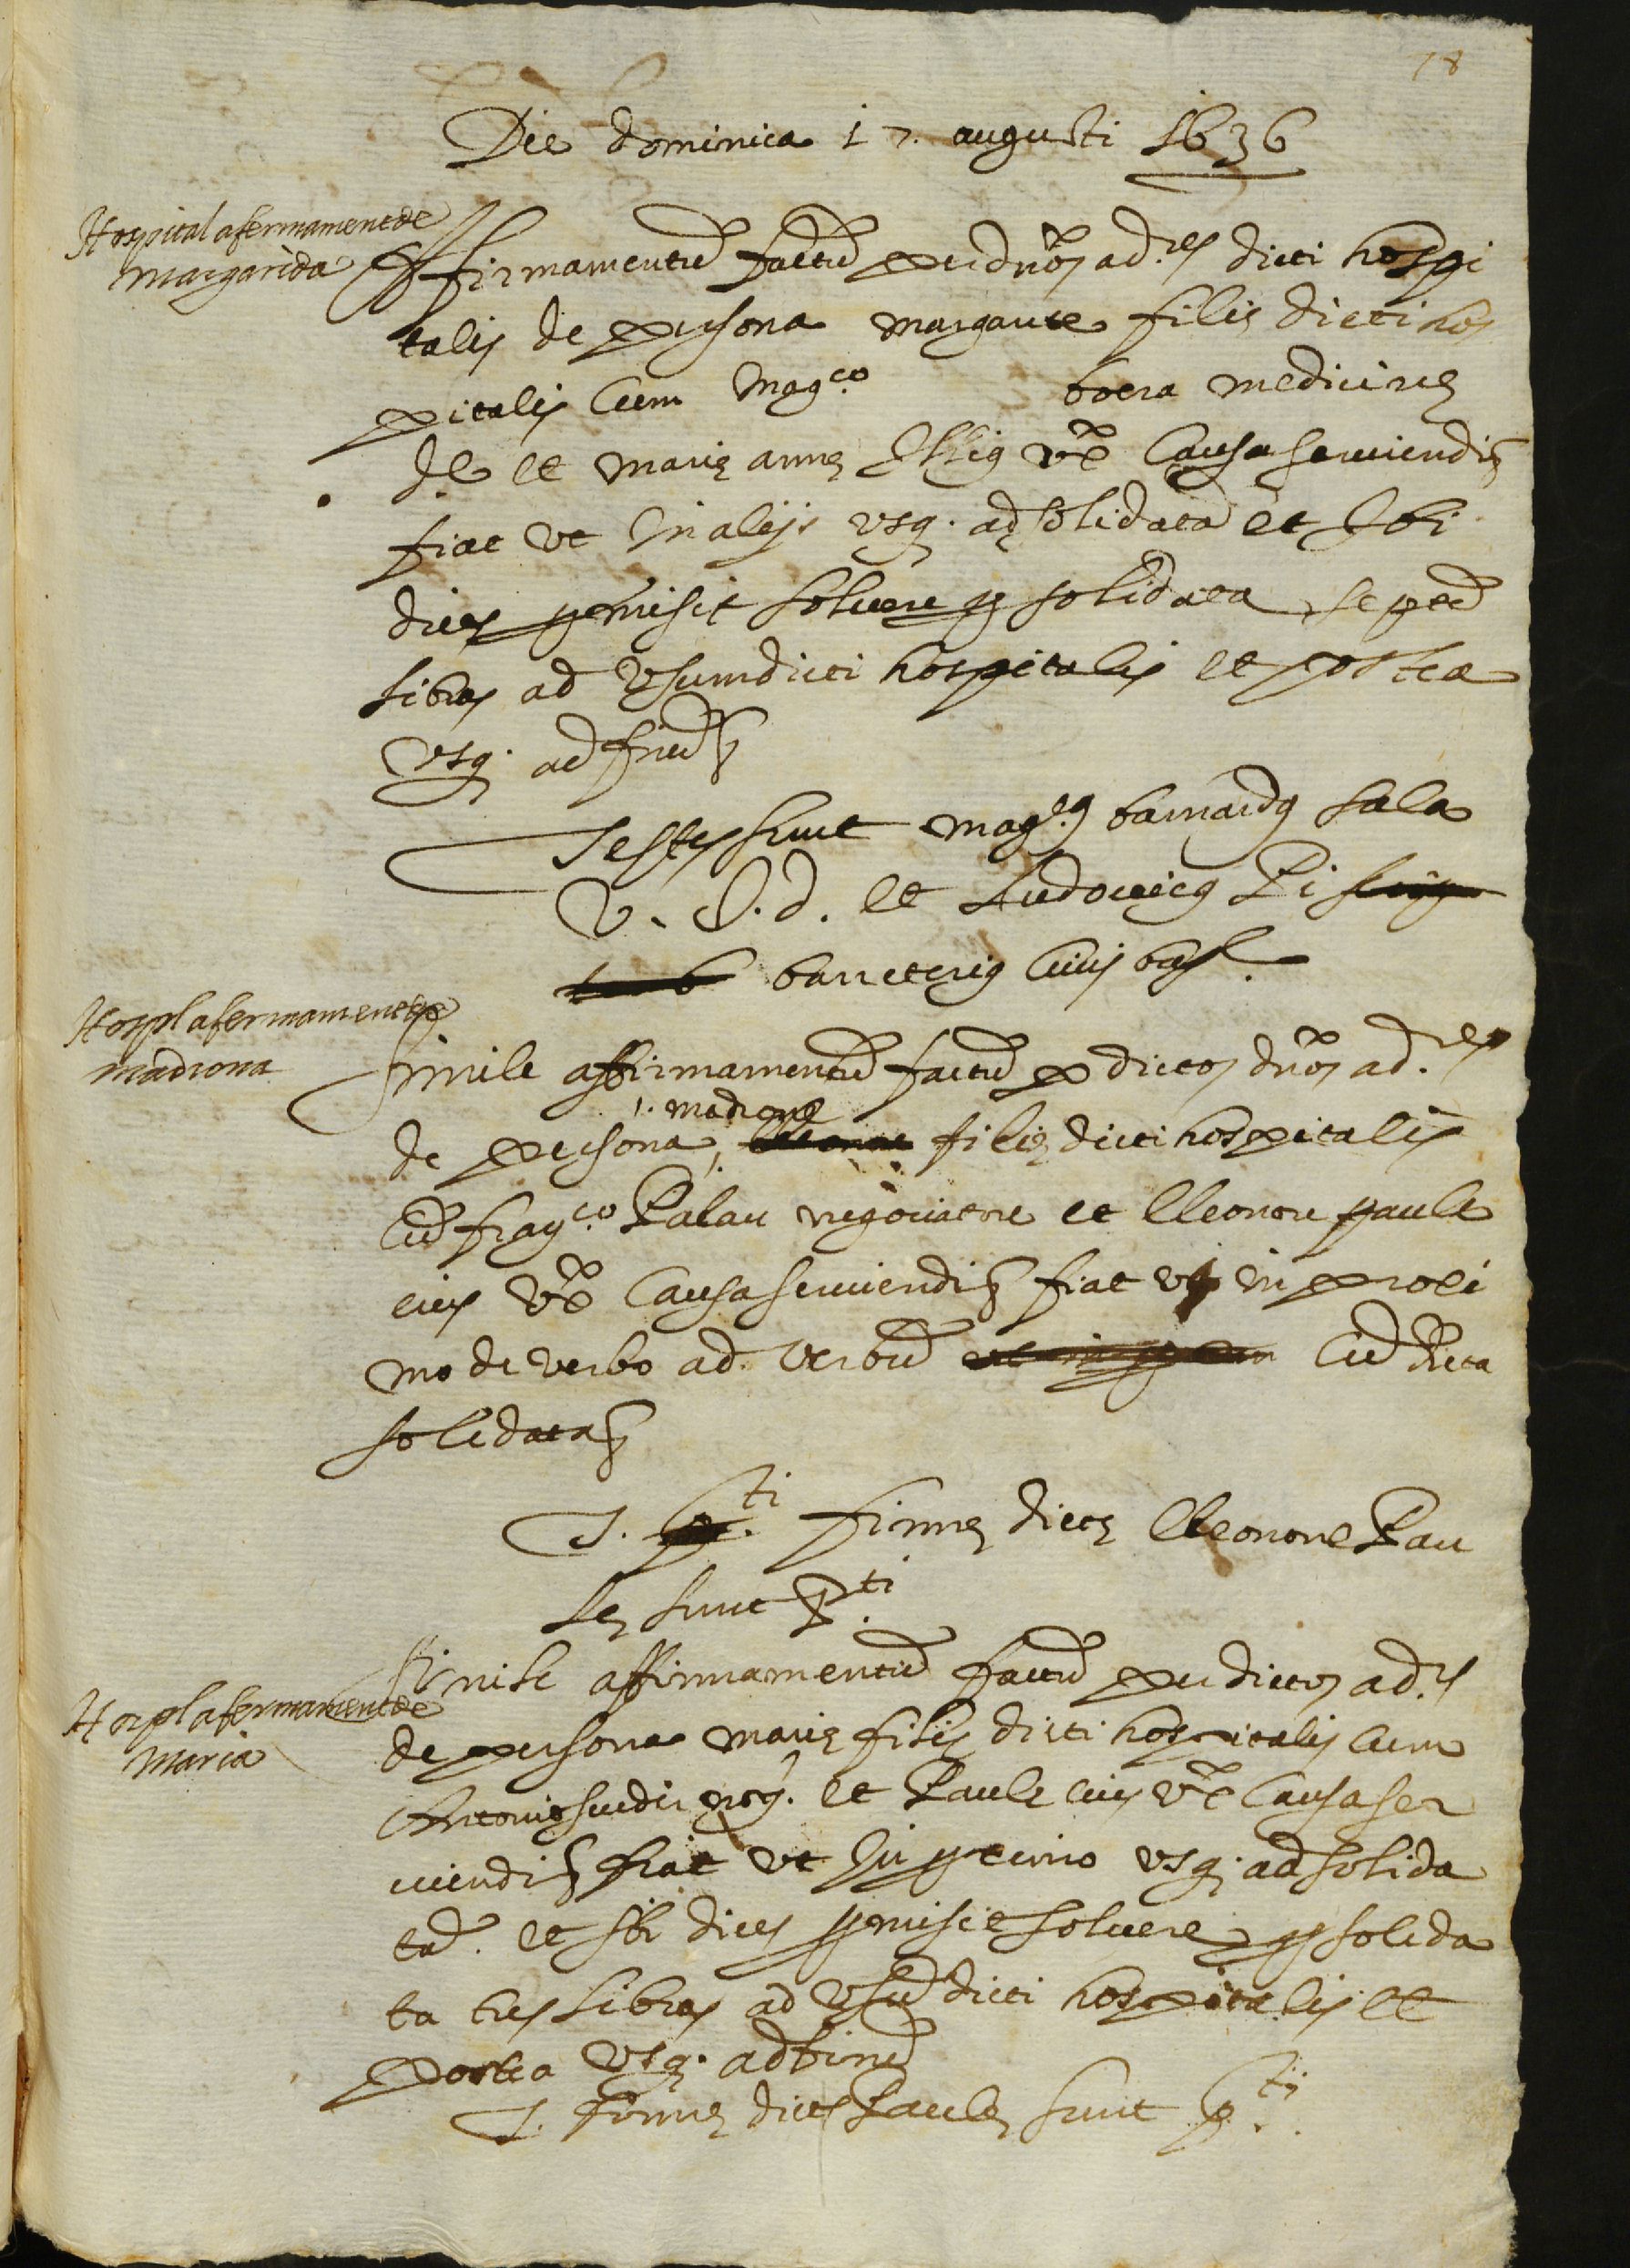 78
Die dominica 17. augusti 1636
Hospital afermament de
margarida
Affirmamentū factū per dños ad.res dicti hospi
talis de persona margarite filie dicti hos
pitalis cum Magco boera medicine
de et marie anne eius vx̄e causa serviendi
fiat ut in alijs usq. ad solidata et ibi
dies promisit solvere pro solidata septē
libras ad usum dicti hospitalis et postea
usq. ad finē
Testes sunt magcs barnardus sala
V. J. d. et Ludovicus Pi
barreterius civis bar.
Hospl afermament de
madrona
Simile affirmamentū factū per dictos dños ad.res
madrone
de persona, filie dicti hospitalis
cū franco. Palau negociatore et Lleonore paule
eius vx̄e causa serviendi fiat ut in proxi
mo de verbo ad verbū cū dicta
solidata
T. firme dicte Lleonore Pau
le sunt p.ti
Hospl afermament de
Maria
Simile affirmamentū factū per dictos ad.s
de persona marie filie dicti hospitalis cum
Antonio not. et Paule eius vx̄e causa ser
viendi fiat ut in primo usq. ad solida
tā. et ibi dies promisit solvere pro solida
ta tres libras ad usū dicti hospitalis et
postea usq. ad finē
T. firme dicte Paule sunt p.ti